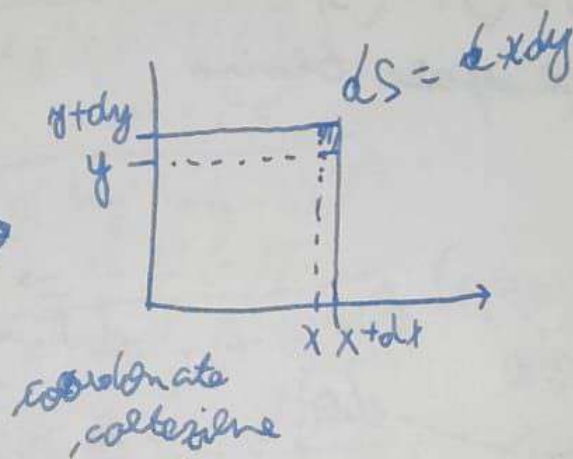 dS = dxdy
y+dy
y
x x+dx
coordinate
cartesiane